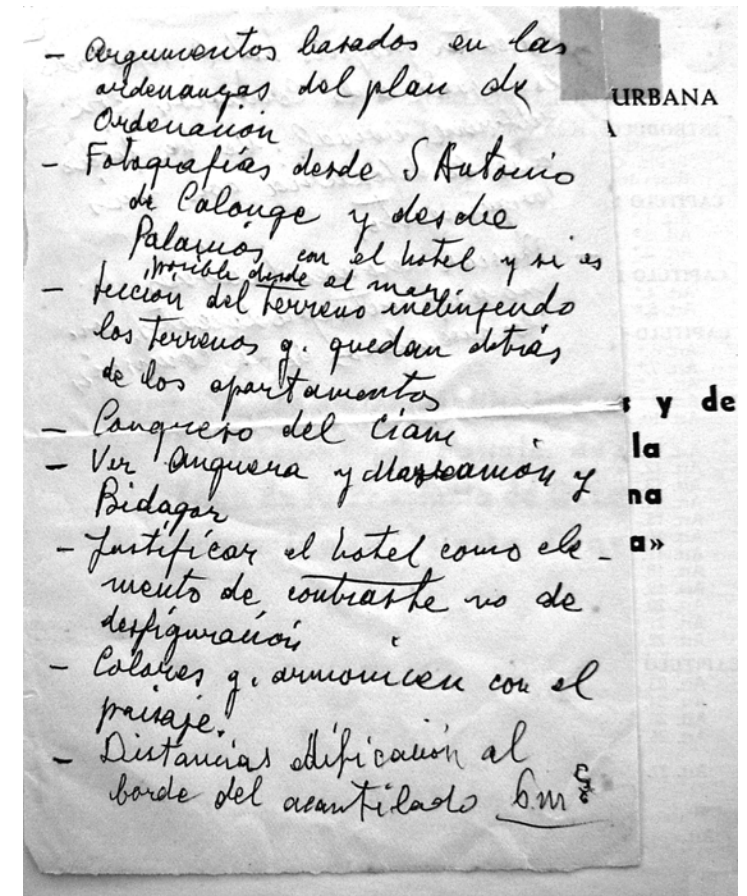 - Argumentos basados en las
ordenanzas del plan de
Ordenación
- Fotografías desde S Antonio
de Calonge y desde
Palamós con el hotel y si es
posible desde el mar.
- Sección del terreno incluyendo
los terrenos q. quedan detrás
de los apartamentos
- Congreso del Ciam
- Ver Anguera y y
Bidagor
- Justificar el hotel como ele-
mento de contraste no de
desfiguración
- Colores q. armonicen con el
paisaje.
- Distancias edificación al
borde del acantilado 6 m
URBANA
s y de
la
na
a»